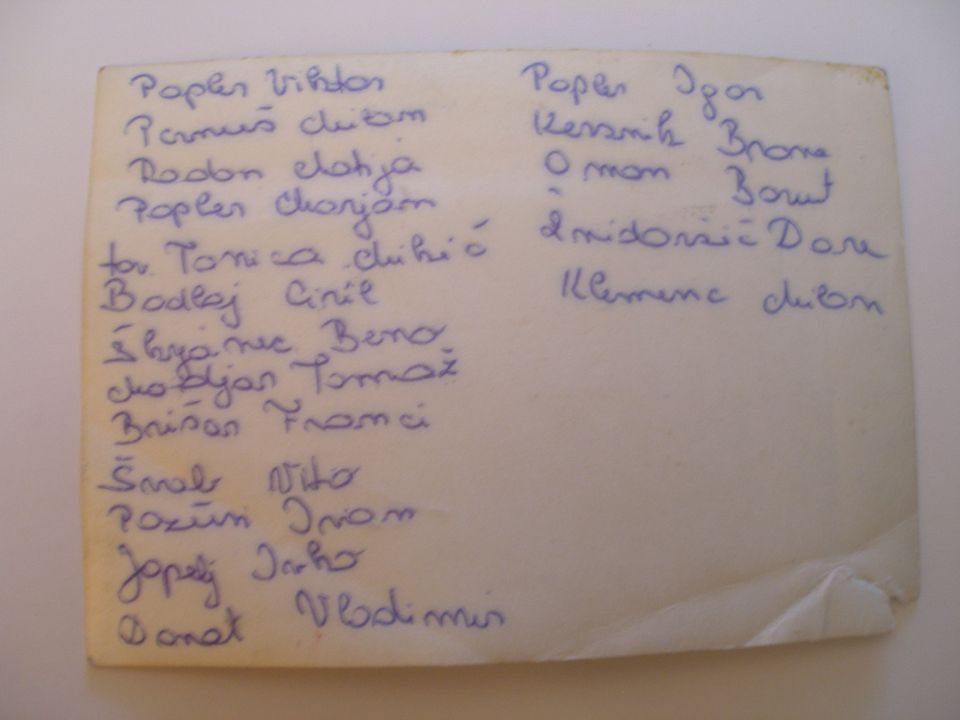 Popler Viktor
Pernuš Milan
Radon Matija
Popler Marjan
tov. Tonica Mikić
Bodlaj Ciril
Škrjanec Beno
Modijan Tomaž
Brišar Franci
Šnab Vito
Pozuri Ivan
Japelj Ivko
Donat Vladimir
Popler Igor
Kersnik Brane
Oman Borut
Žmidaršič Dare
Klemenc Milan